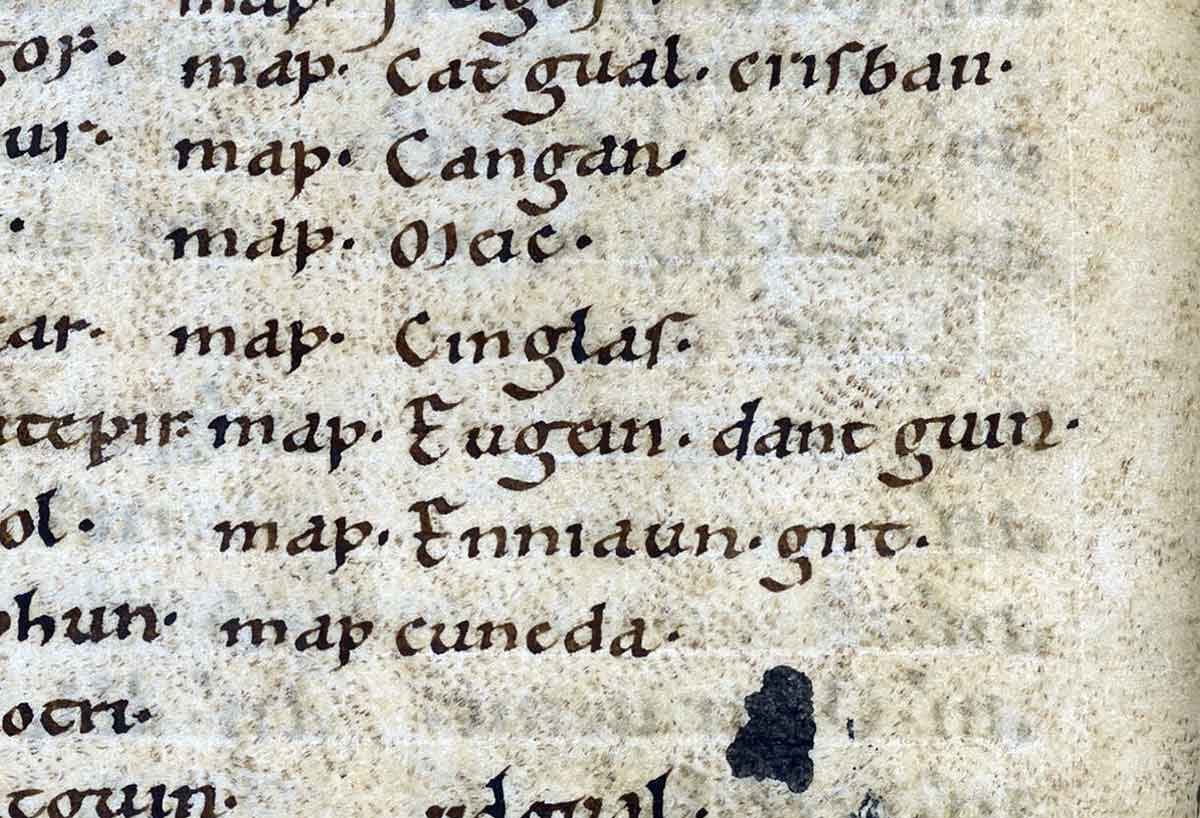 map.
map. Cat gual. crisban.
map. Cangan.
map. Meic.
map. Cinglas.
map. Eugein. dant guin.
ol. map. Enniaun. girt.
hun. map cuneda.
otri.